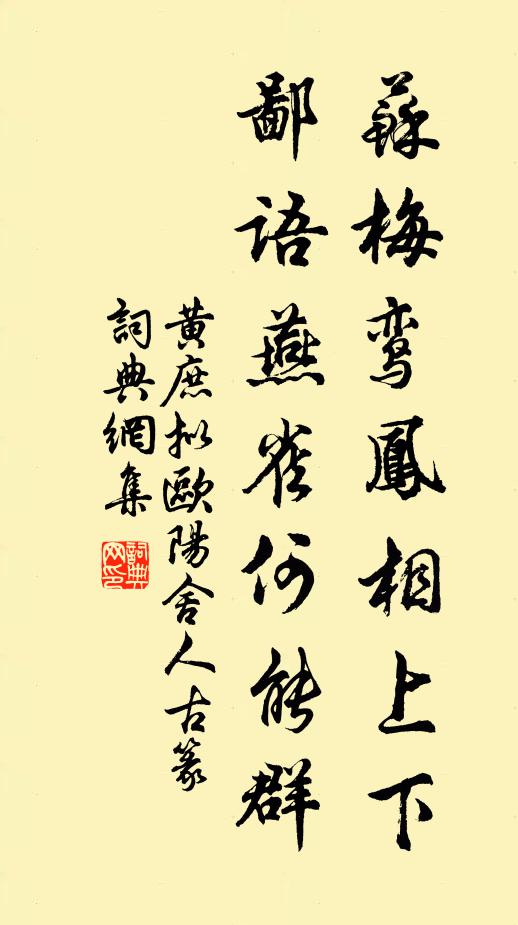 蘇梅鸾鳳相上下
鄙語燕雀何能群
黄庶拟歐陽舍人古篆
詞典網集
詞典网印